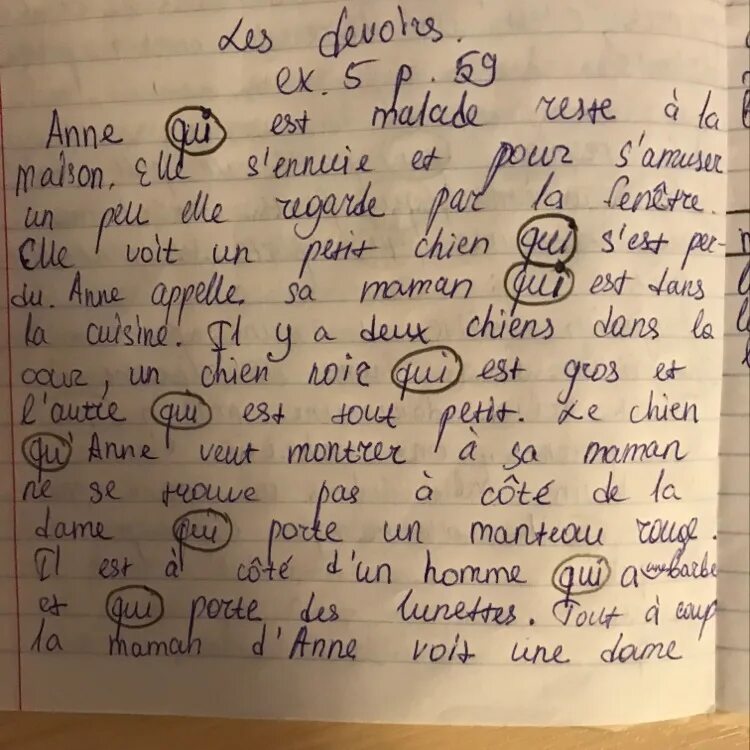 Les devoirs.
ex. 5 p. 59
Anne qui est malade reste à la
maison. Elle s'ennuie et pour s'amuser
un peu elle regarde par la fenêtre.
Elle voit un petit chien qui s'est per-
du. Anne appelle sa maman qui est dans
la cuisine. Il y a deux chiens dans la
cour, un chien noir qui est gros et
l'autre qui est tout petit. Le chien
qu'Anne veut montrer à sa maman
ne se trouve pas à côté de la
dame qui porte un manteau rouge.
Il est à côté d'un homme qui a une barbe
et qui porte des lunettes. Tout à coup
la maman d'Anne voit une dame